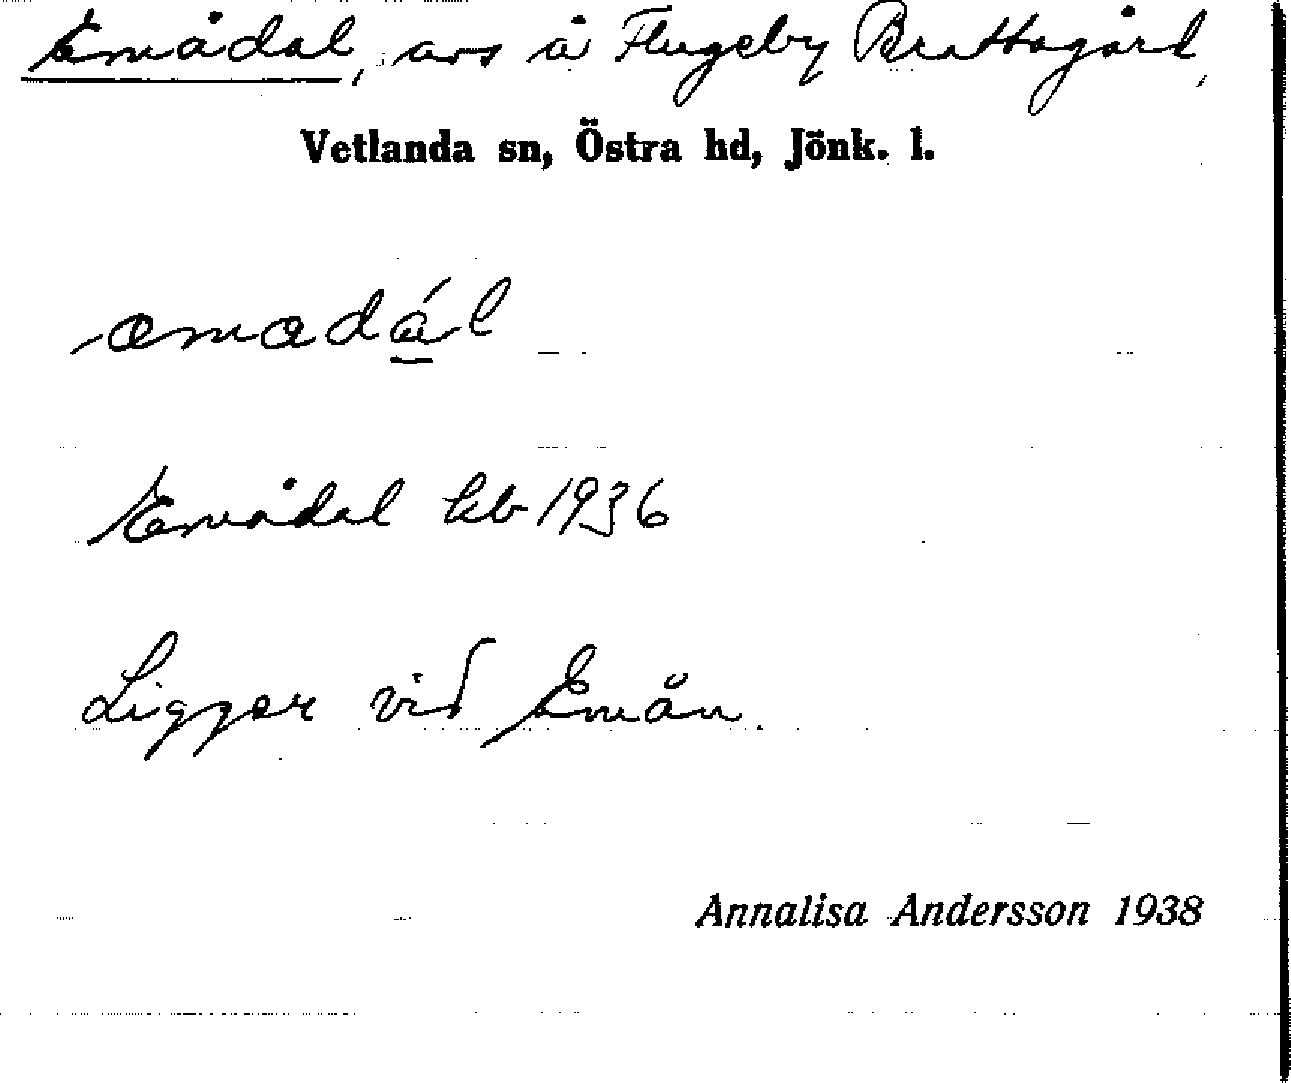 Emådal, avs å Flugeby Brattagård,
Vetlanda sn, Östra hd, Jönk. l.
Emådal kb 1936
Ligger vid Emån.
Annalisa Andersson 1938